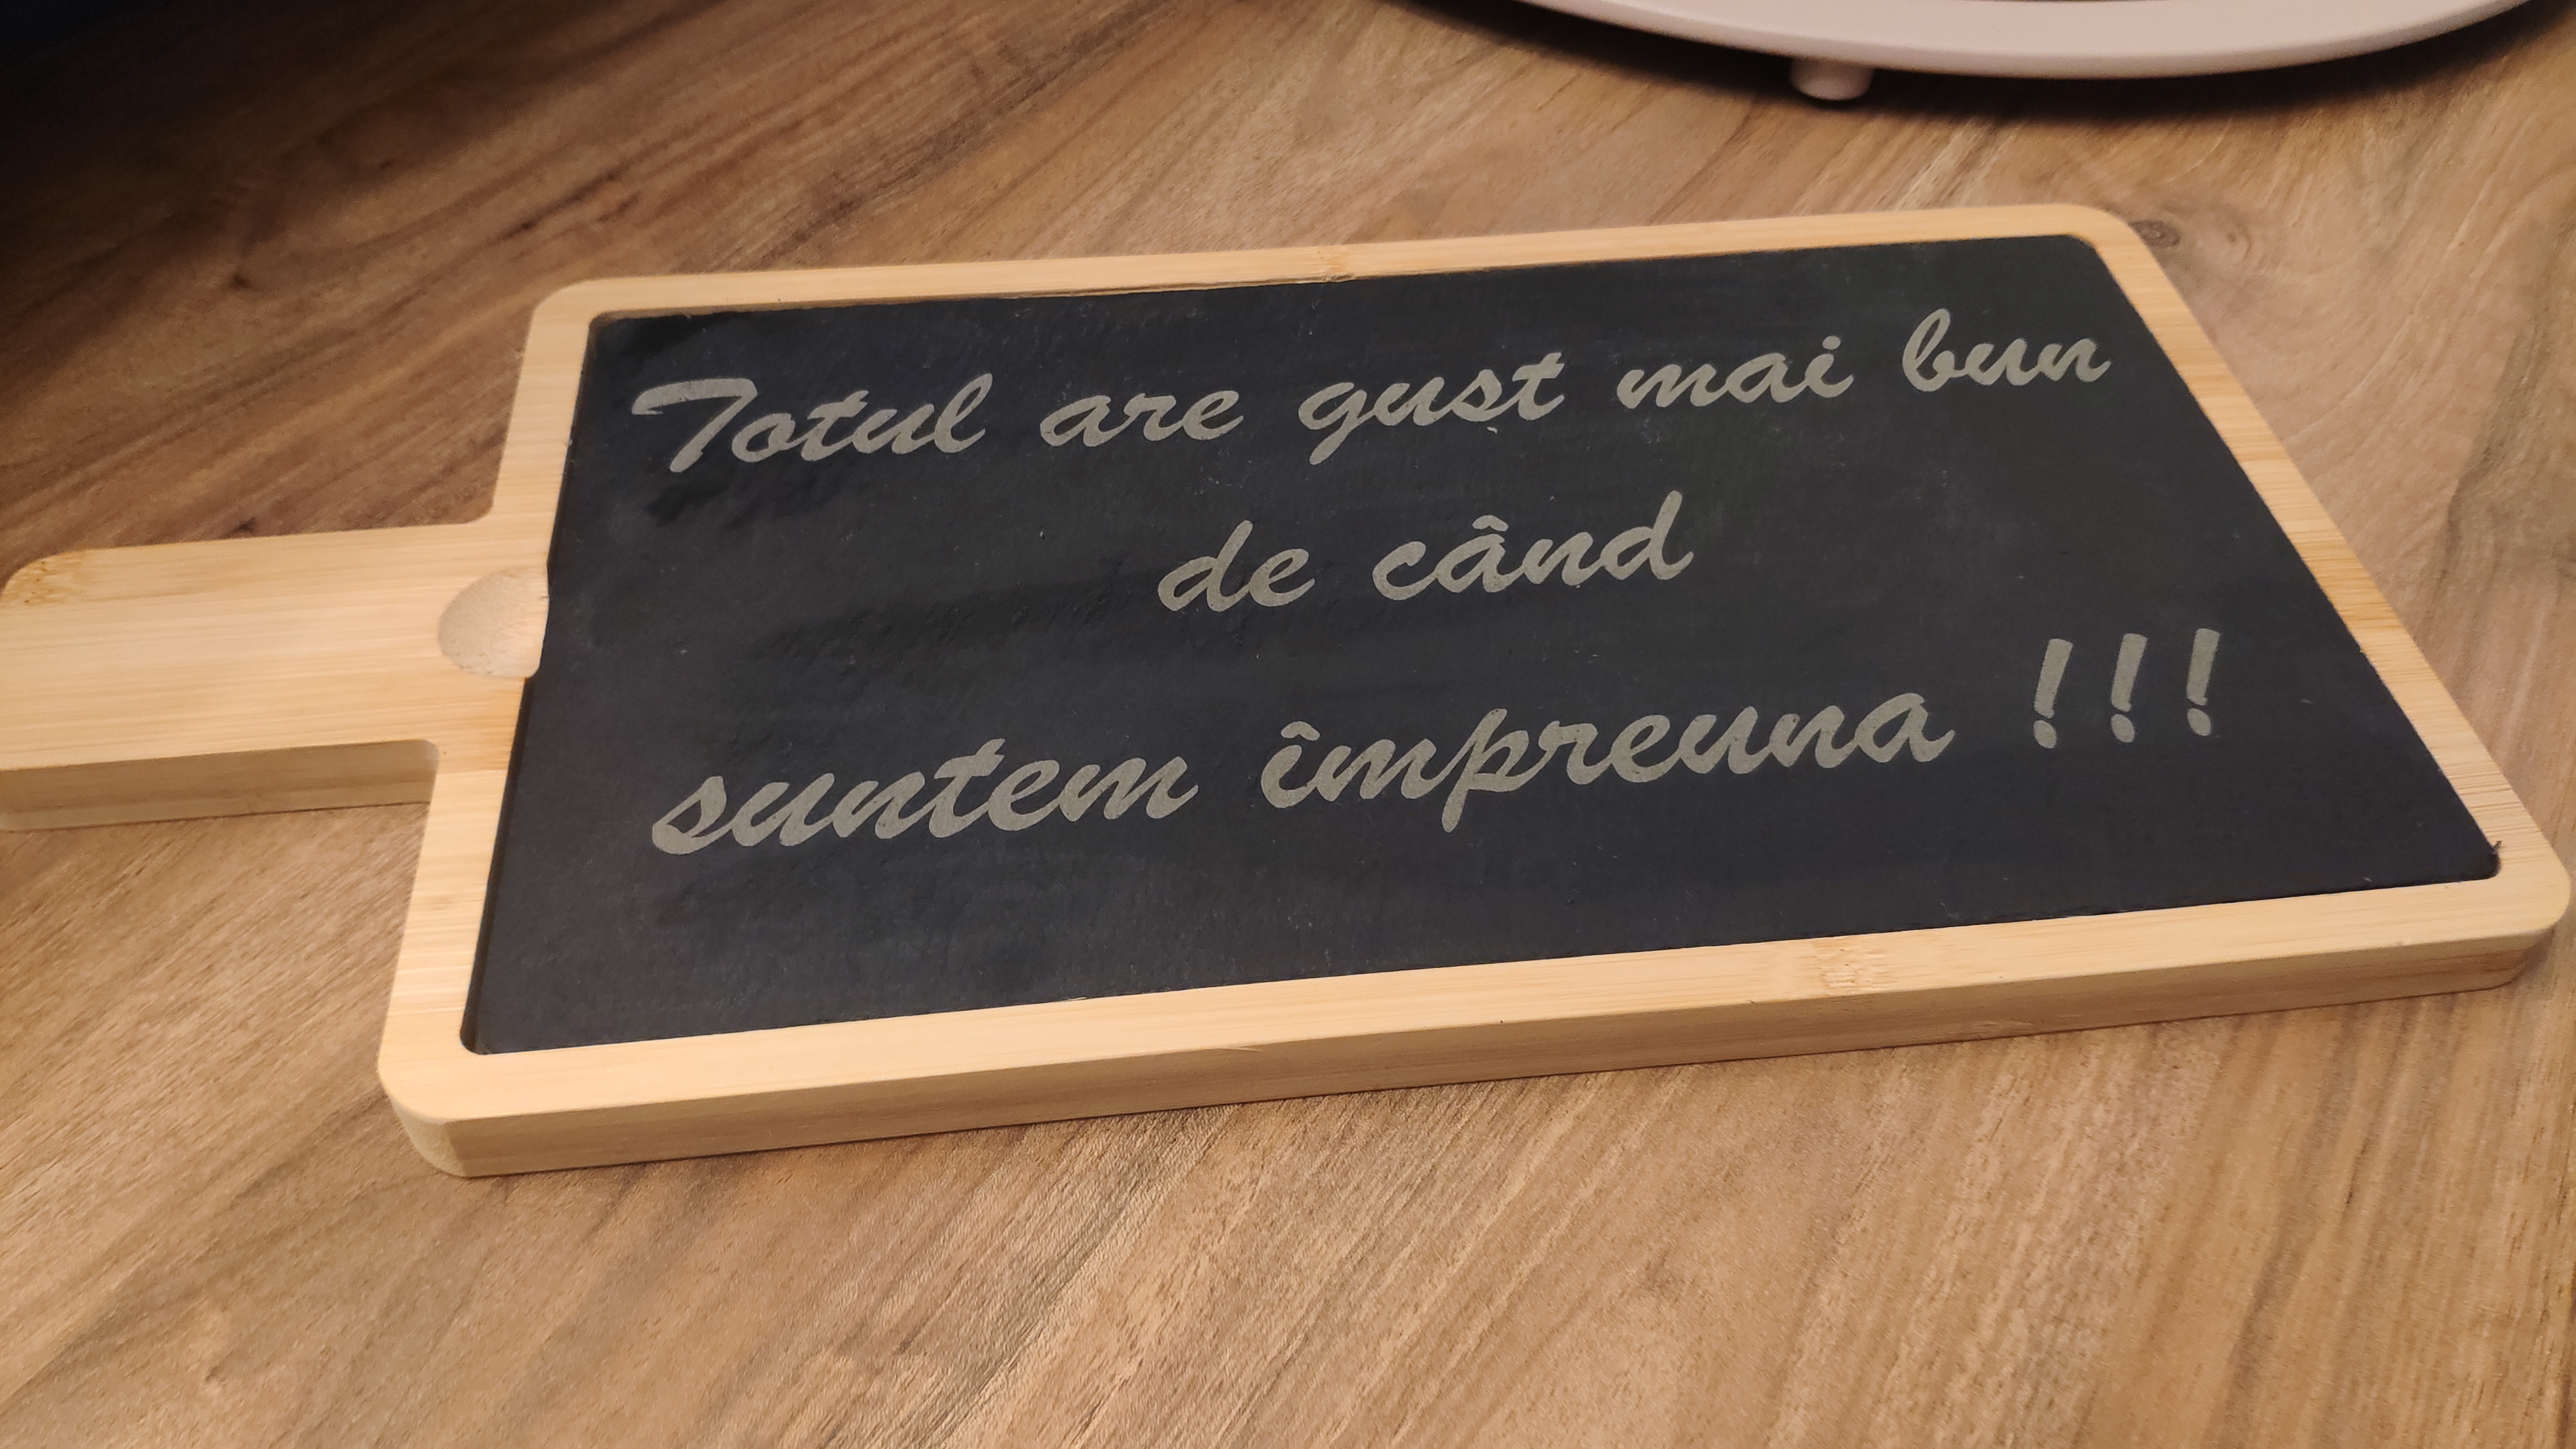 Totul are gust mai bun
de când
suntem împreuna !!!